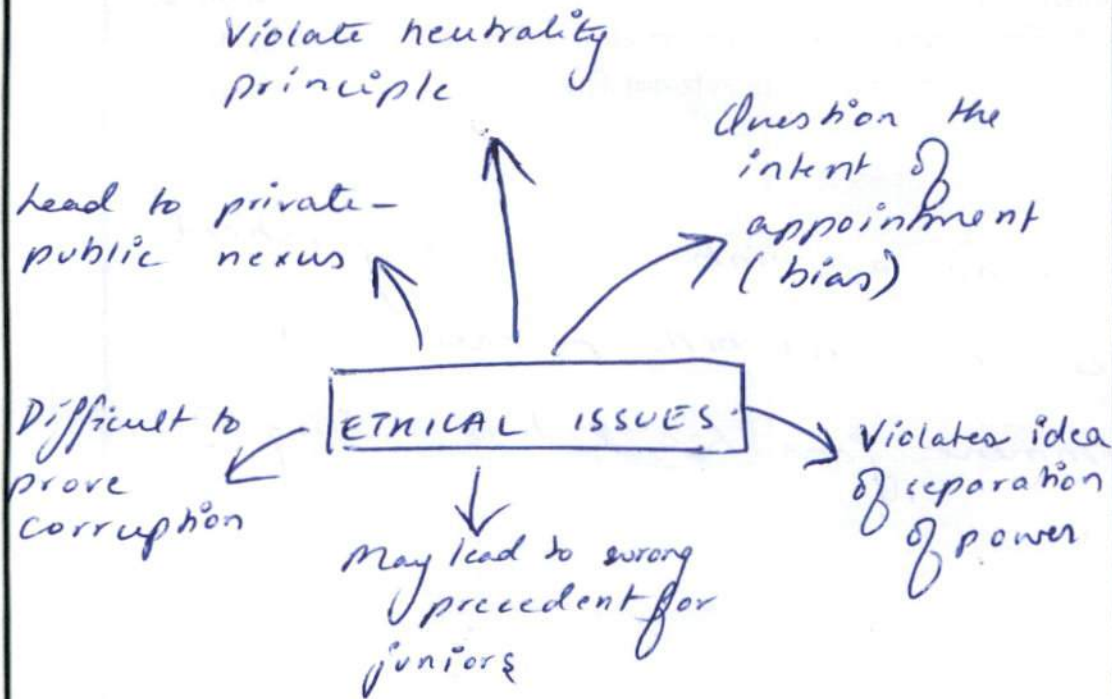 Violate neutrality
principle
Question the
intent of
appointment
(bias)
Lead to private-
public nexus
ETHICAL ISSUES
Difficult to
prove
corruption
Violates idea
of separation
of power
May lead to wrong
precedent for
juniors